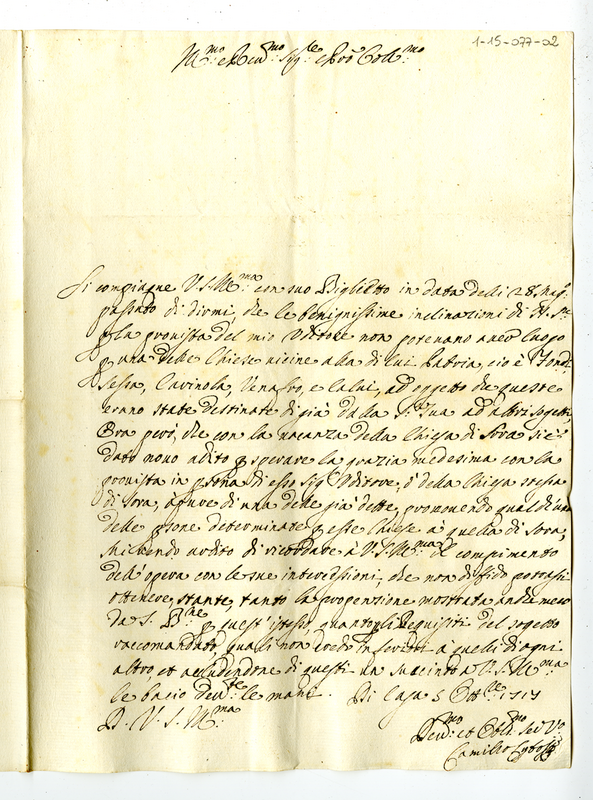 1-15-077-02
Ill.mo e Rev.mo Sig.re e Pron Coll.mo
Si compiaque V.S.Ill.ma con suo Biglietto in data delli 28. Mag.o
passato di dirmi, che le benignissime inclinazioni di N. S.re
p la provista del mio Uditore non potevano aver luogo
p una delle Chiese vicine alla di lui Patria, cio è Fondi
Sessa, Carinola, Venafro, e Calvi, ad oggetto che queste
erano state destinate di già dalla S. Sua ad altri sogetti,
Ora però, che con la vacanza della Chiesa di Sora si è
dato novo adito p sperare la grazia medesima con la
provista in p.sona di esso Sig.r Uditore, ò della Chiesa stessa
di Sora, ò pure di una delle già dette, promovendo qualcheduna
delle p.sone determinate p esse Chiese à quella di Sora,
mi prendo ardito di ricordare à V.S.Ill.ma il compimento
dell'opera con le sue intercessioni, che non diffido potrassi
ottenere, stante, tanto la propenzione mostrata anche meco
da S. B.ne p quest'istesso, quanto p li Requisiti del sogetto
raccomandato, quali non credo inferiori à quelli di ogni
altro, et accludendone di questi un succinto à V. S. Ill.ma
le bacio dev.te le mani. Di Casa 5 Ott.re 1717
D. V. S. Ill.ma
Dev.mo et Obl.mo Ser.re V.o
Camillo Cybo